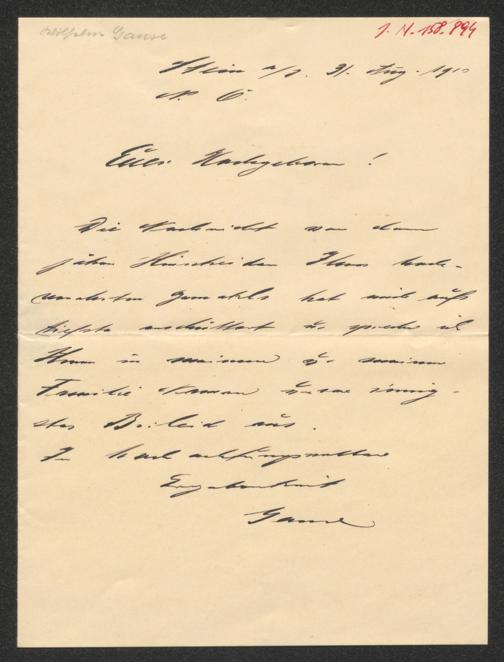 Wilhelm Gause
J. N. 158.894
Stein a/D. 31. Aug. 1910
N. Ö.
Euer Hochgeboren!
Die Nachricht von dem
jähen Hinscheiden Ihres hoch-
verehrten Gemahls hat mich aufs
tiefste erschüttert u. spreche ich
Ihnen in meinem u. meiner
Familie Namen unser innig-
stes Beileid aus.
In hochachtungsvoller
Ergebenheit
Gause